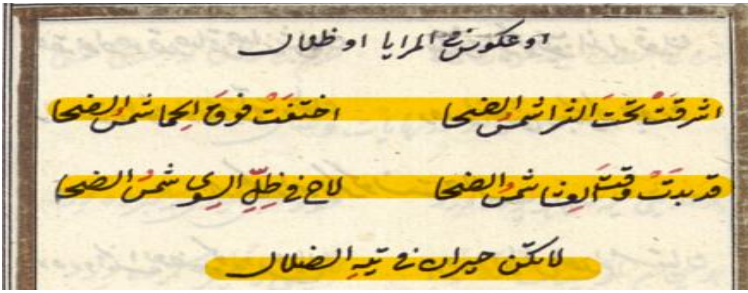 او عكوس في المرايا او ظلال
اشرقَتْ تحتَ الثرا شمسُ الضحا اختفَتْ فوقَ الحِما شمسُ الضحا
قد بدَتْ وقتَ العِشا شمسُ الضحا لاح في ظِلِّ السِوي شمسُ الضحا
لا تكن حيران في تيهِ الضلال